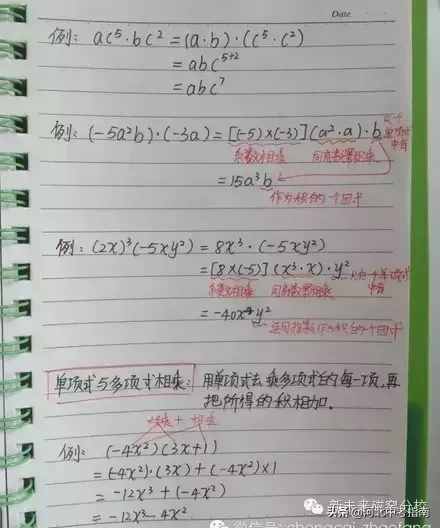 Date
例: ac⁵·bc² = (a·b)·(c⁵·c²)
= abc⁵⁺²
= abc⁷
例: (-5a²b)·(-3a) = [(-5)×(-3)](a²·a)·b
系数相乘 同底数幂相乘
= 15a³b
作为积的一个因式
例: (2x)³(-5xy²) = 8x³·(-5xy²)
= [8×(-5)](x³·x)·y² 只在一个单项式中有
系数相乘 同底数幂相乘
= -40x⁴y²
连同指数作为积的一个因式
单项式与多项式相乘: 用单项式去乘多项式的每一项,再
把所得的积相加.
例: (-4x²)(3x+1)
= (-4x²)·(3x)+(-4x²)×1
= -12x³+(-4x²)
= -12x³-4x²